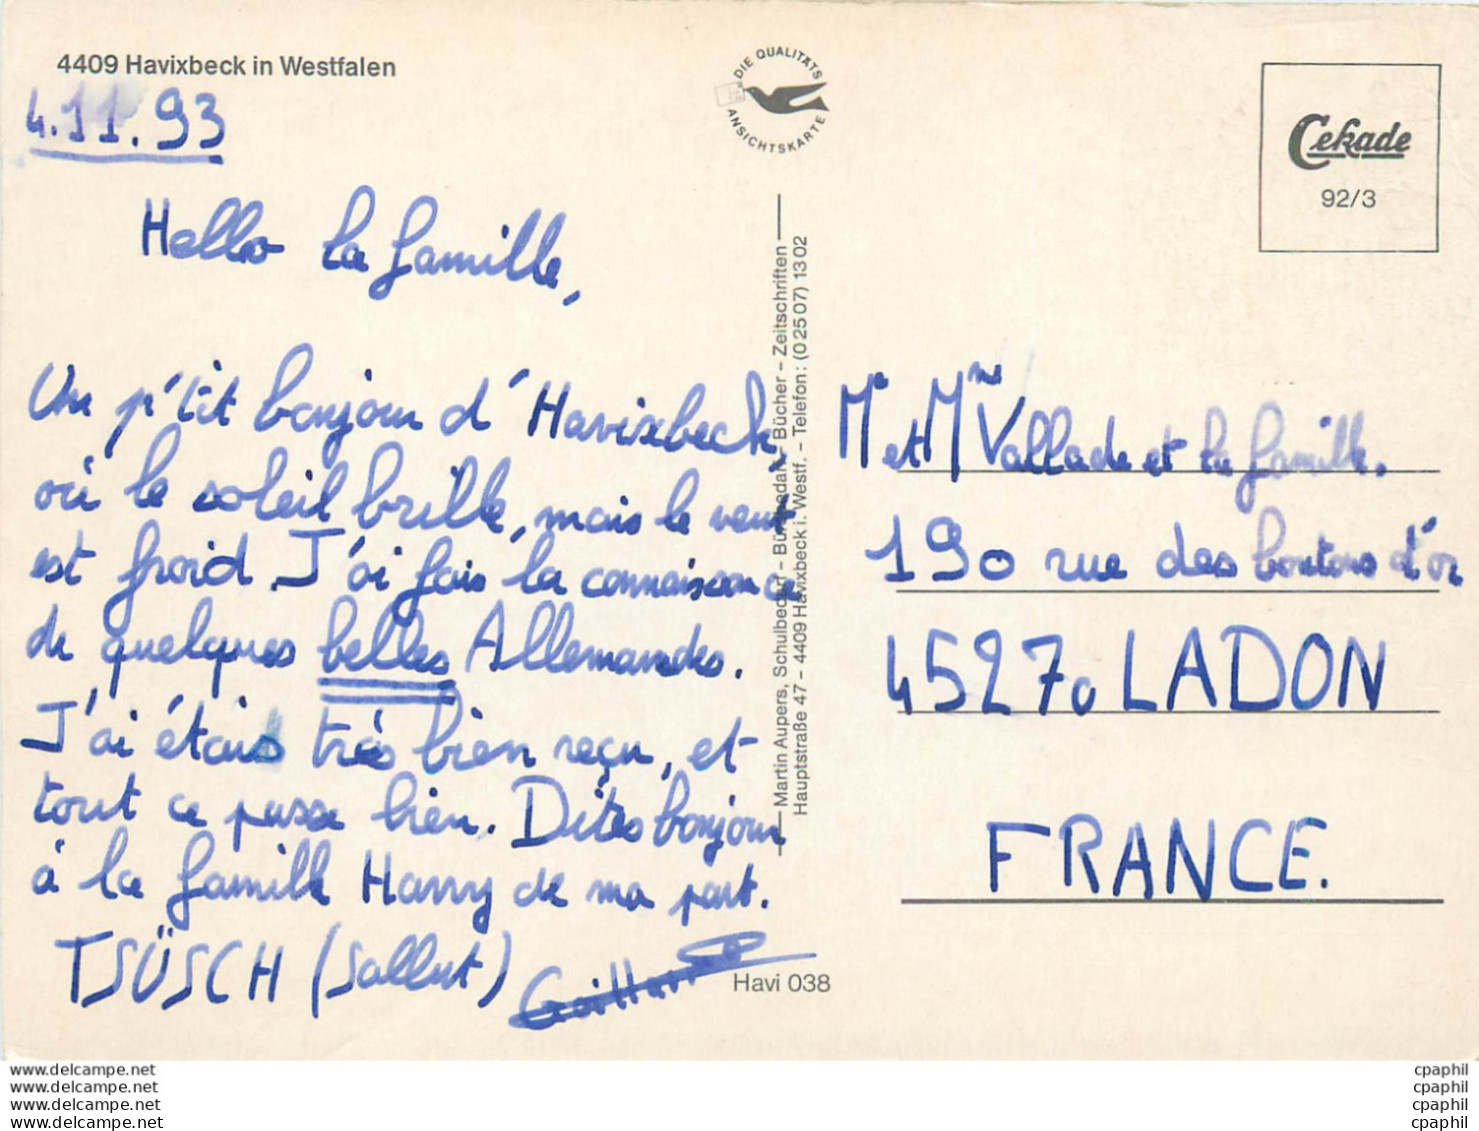 4409 Havixbeck in Westfalen
4.11.93
Hello la famille,
Un p'tit bonjour d'Havixbeck,
où le soleil brille, mais le vent
est froid. J'ai fais la connaissance
de quelques belles Allemandes.
J'ai étais très bien reçu, et
tout ce passe bien. Dites bonjour
à la famille Harry de ma part.
TSÜSCH (Sallut)
DIE QUALITÄTS
ANSICHTSKARTE
Martin Aupers, Schulbedarf - Bürobedarf - Bücher - Zeitschriften
Hauptstraße 47 - 4409 Havixbeck i. Westf. - Telefon: (0 25 07) 13 02
Havi 038
Cekade
92/3
Mr et Mme Vallade et la famille.
190 rue des boutons d'or
45270 LADON
FRANCE.
www.delcampe.net
www.delcampe.net
www.delcampe.net
www.delcampe.net
cpaphil
cpaphil
cpaphil
cpaphil